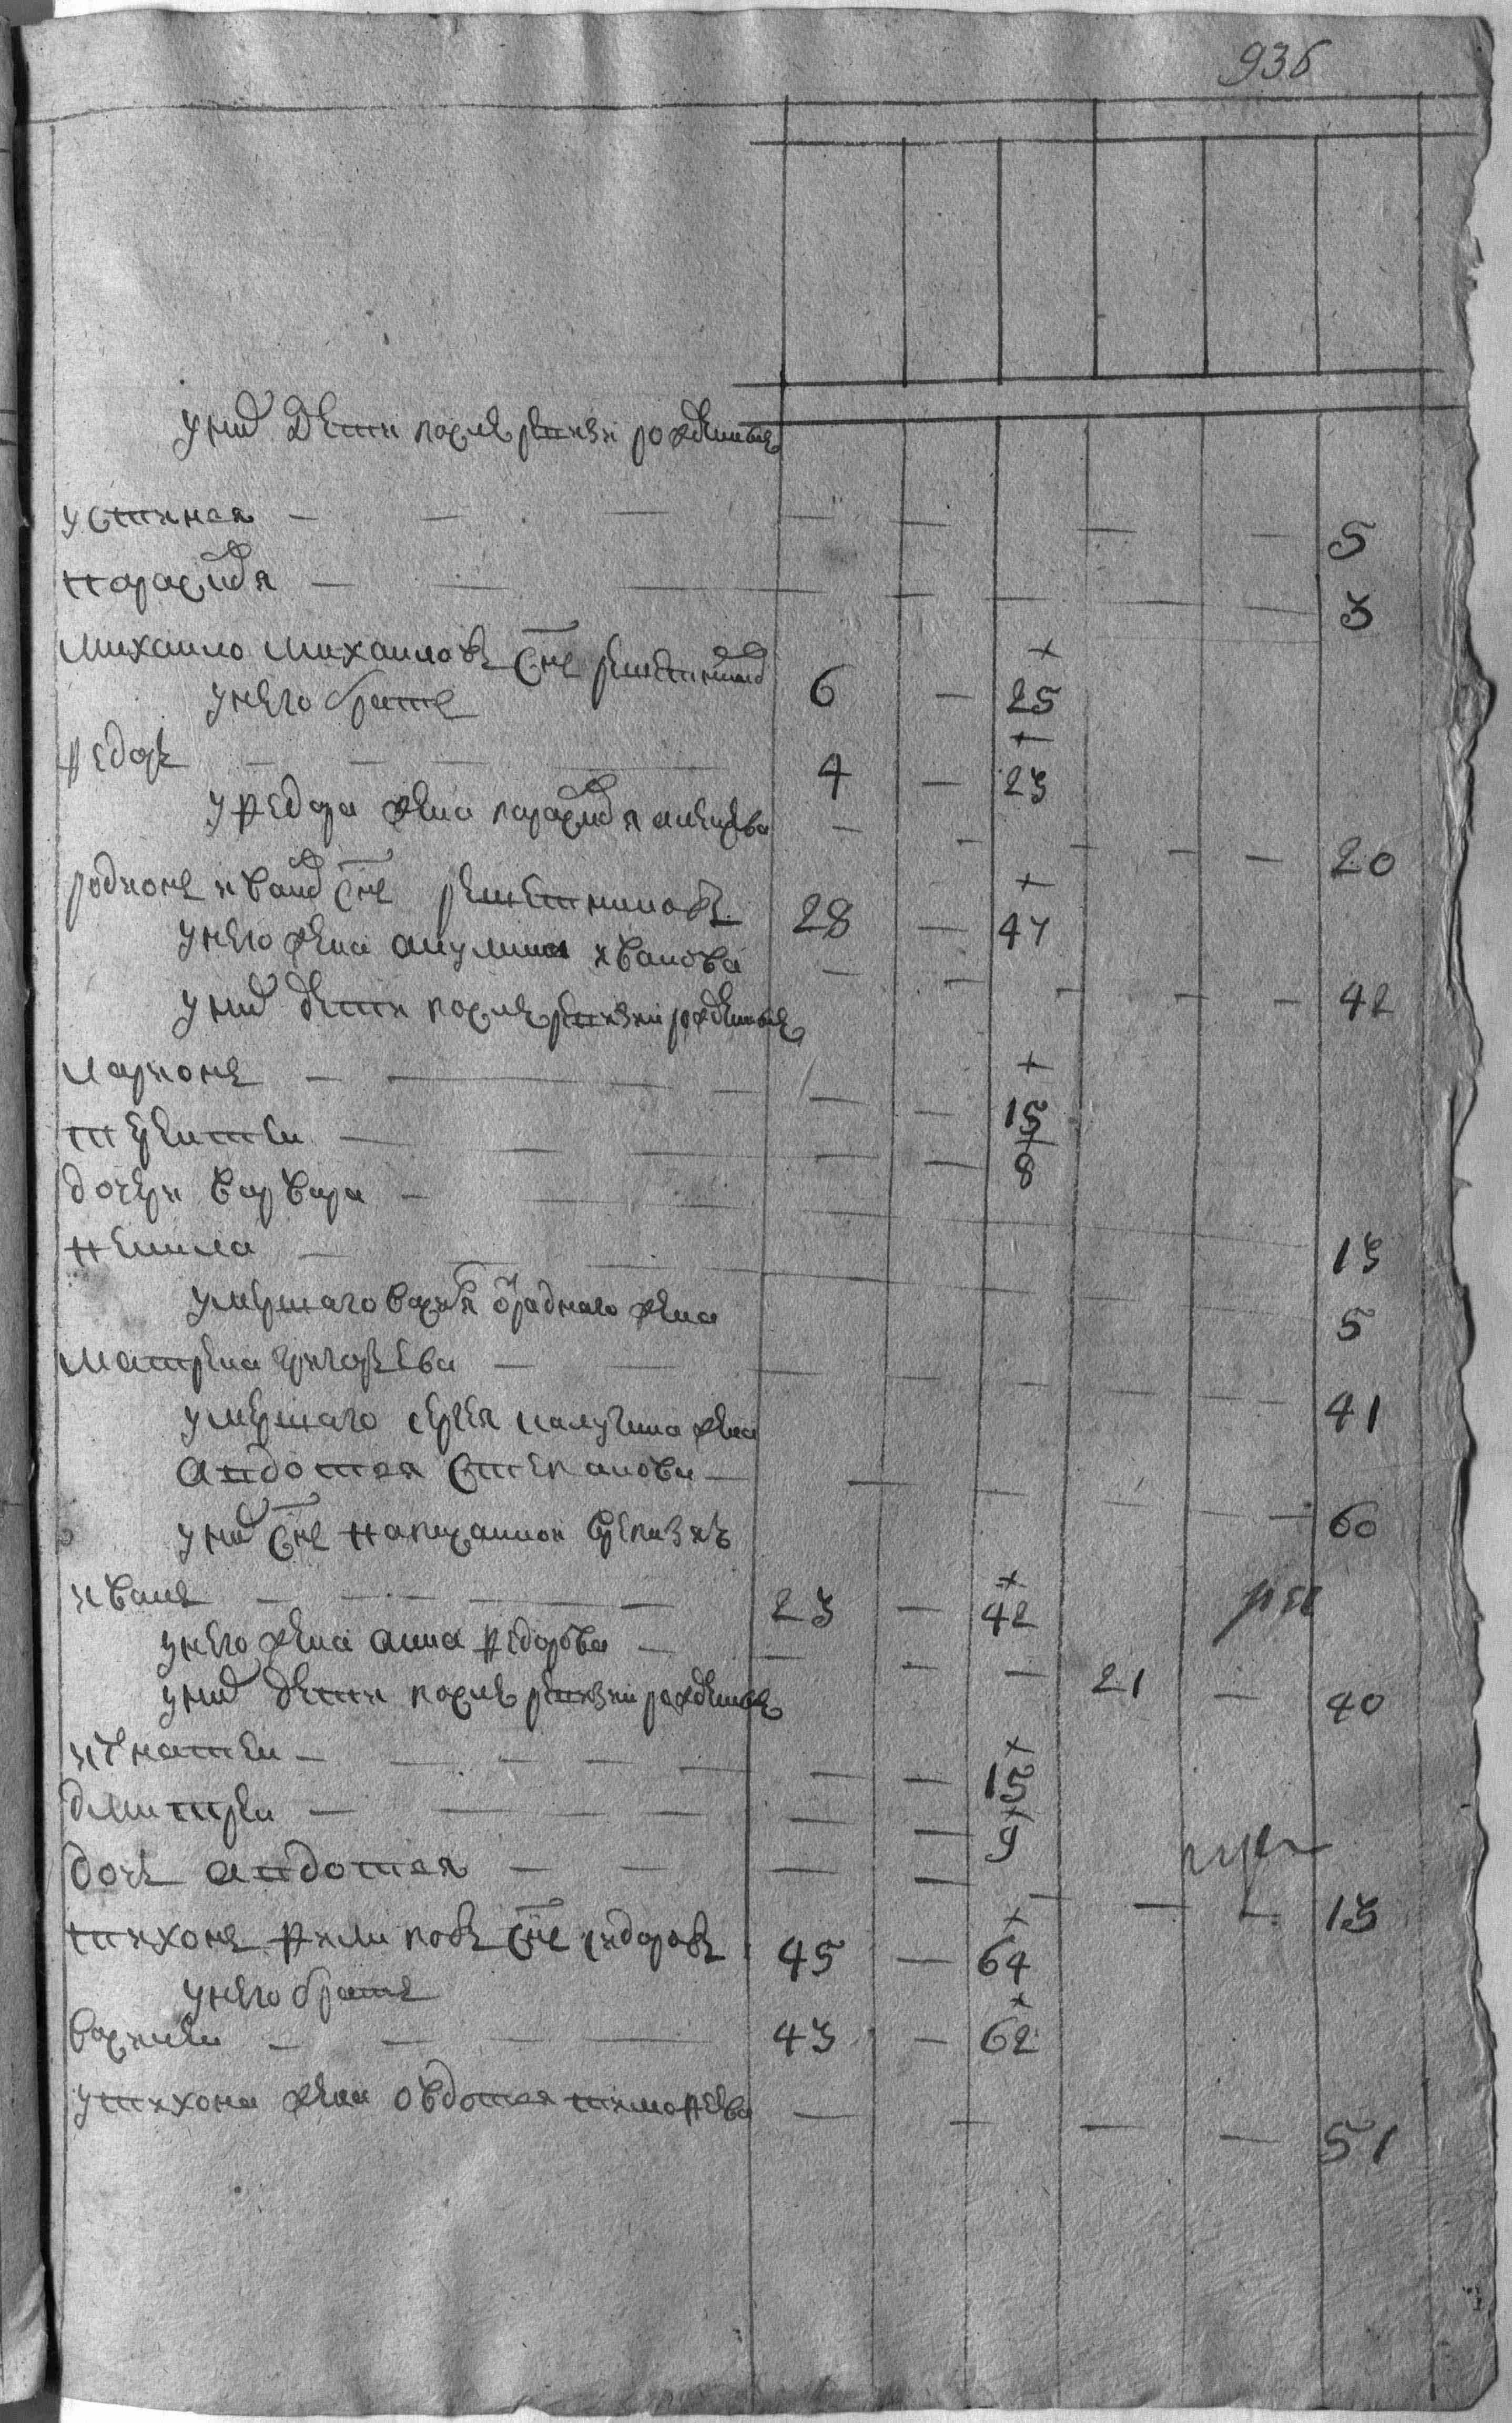 936
у них дети после ревизи рожденные
устинья — — — — — — — 5
парасковья — — — — — — — 3
михаило михаиловъ сн̃ъ решетниковъ 6 — 25
у него братъ
федоръ — — — — 4 — 23
у федора жена парасковья алексеева — — — — — 20
родионъ иванов сн̃ъ решетниковъ 28 — 47
у него жена акулина иванова — — — — — 42
у них дети после ревизии рожденные
ларионъ — — — — — — 15
терентеи — — — — — 8
дочери варвара — — — 13
ненила — — — 5
умершаго василья жена
матрена григорьева — — — — — — 41
умершаго сергея жена
авдотья степанова — — — — — — 60
у них сн̃ъ написанной в ревизиї
иванъ — — — — — 23 — 42
у него жена анна федорова — — — — 21 — 40
у них дети после ревизии рожденные
игнатеи — — — — — — — 15
дмитреи — — — — — — 9
дочь авдотья — — — — — — — 13
тихонъ филиповъ сн̃ъ сидоровъ 45 — 64
у него братъ
василеи — — — — 43 — 62
у тихона жена овдотья тимофеева — — — — 51